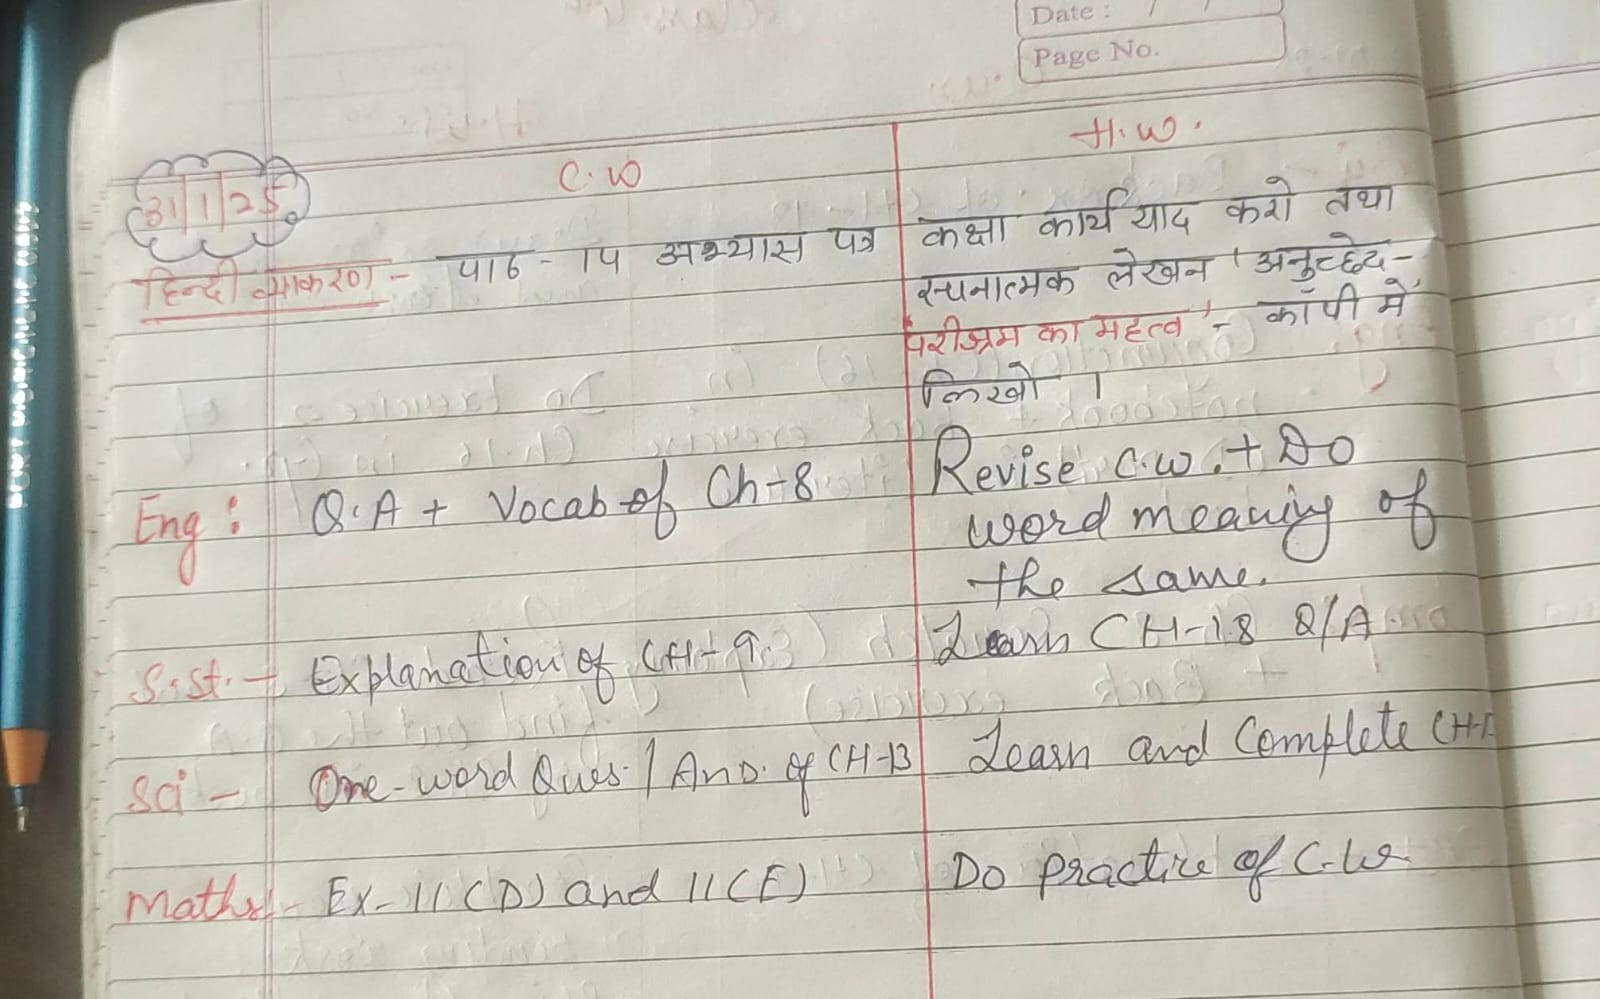 Date : / /
Page No.
C.W
H.W.
31/1/25
हिन्दी व्याकरण - पाठ - 14 अभ्यास पत्र
कक्षा कार्य याद करो तथा
रचनात्मक लेखन 'अनुच्छेद-
परीश्रम का महत्व' - कॉपी में
लिखो ।
Eng : Q.A + Vocab of Ch-8
Revise C.W. + Do
word meaning of
the same.
S.St. - Explanation of CH-9
Learn CH-18 Q/A
Sci - One-word Ques. / Ans. of CH-13
Learn and Complete CH-
Maths - Ex-11(D) and 11(E)
Do practice of C.W